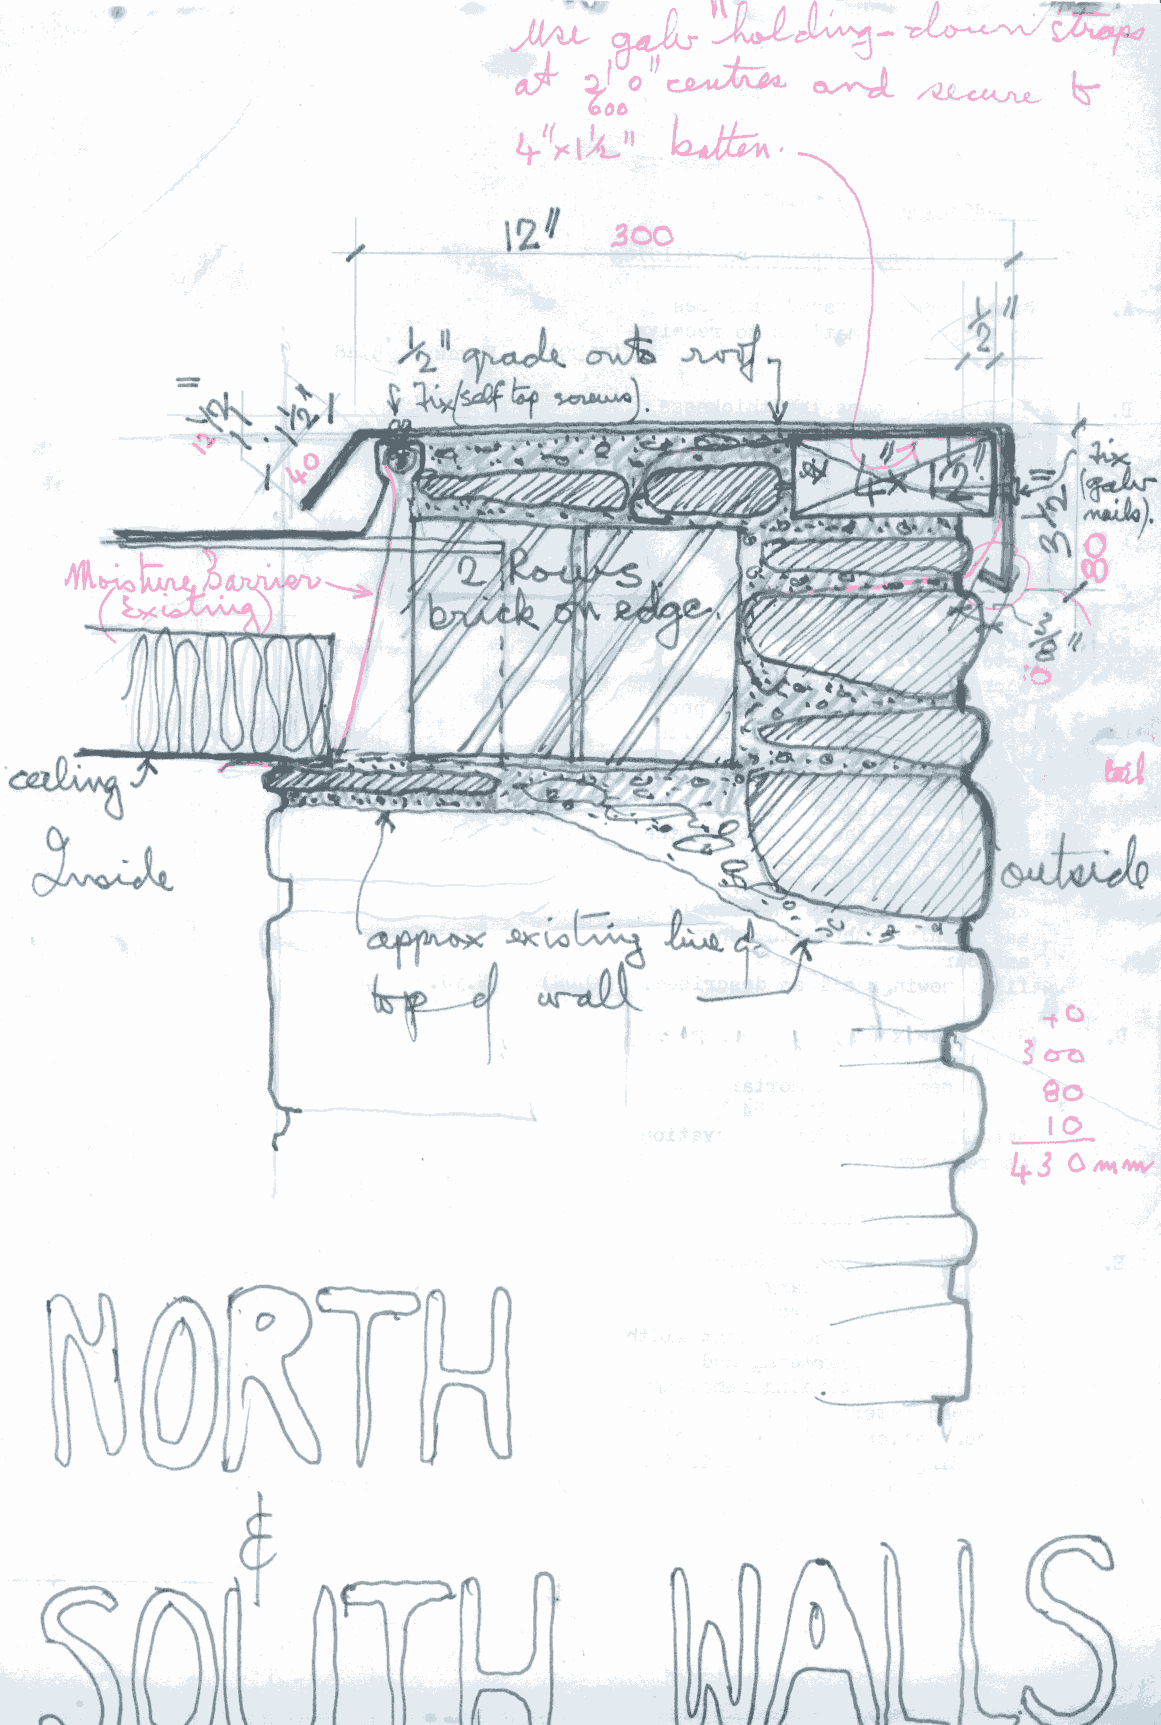 Use galv "holding-down straps
at 2'0" centres and secure to
600
4"x1½" batten.
12" 300
½"
½" grade onto roof
Fix (self tap screws).
½"
12
1½"
40
4"x1½"
3½"
80
Fix
(galv
nails).
Moisture Barrier
(Existing)
2 Rows
brick on edge.
3/8"
10
ceiling
Inside
outside
approx existing line of
top of wall
40
300
80
10
430mm
NORTH
&
SOUTH WALLS